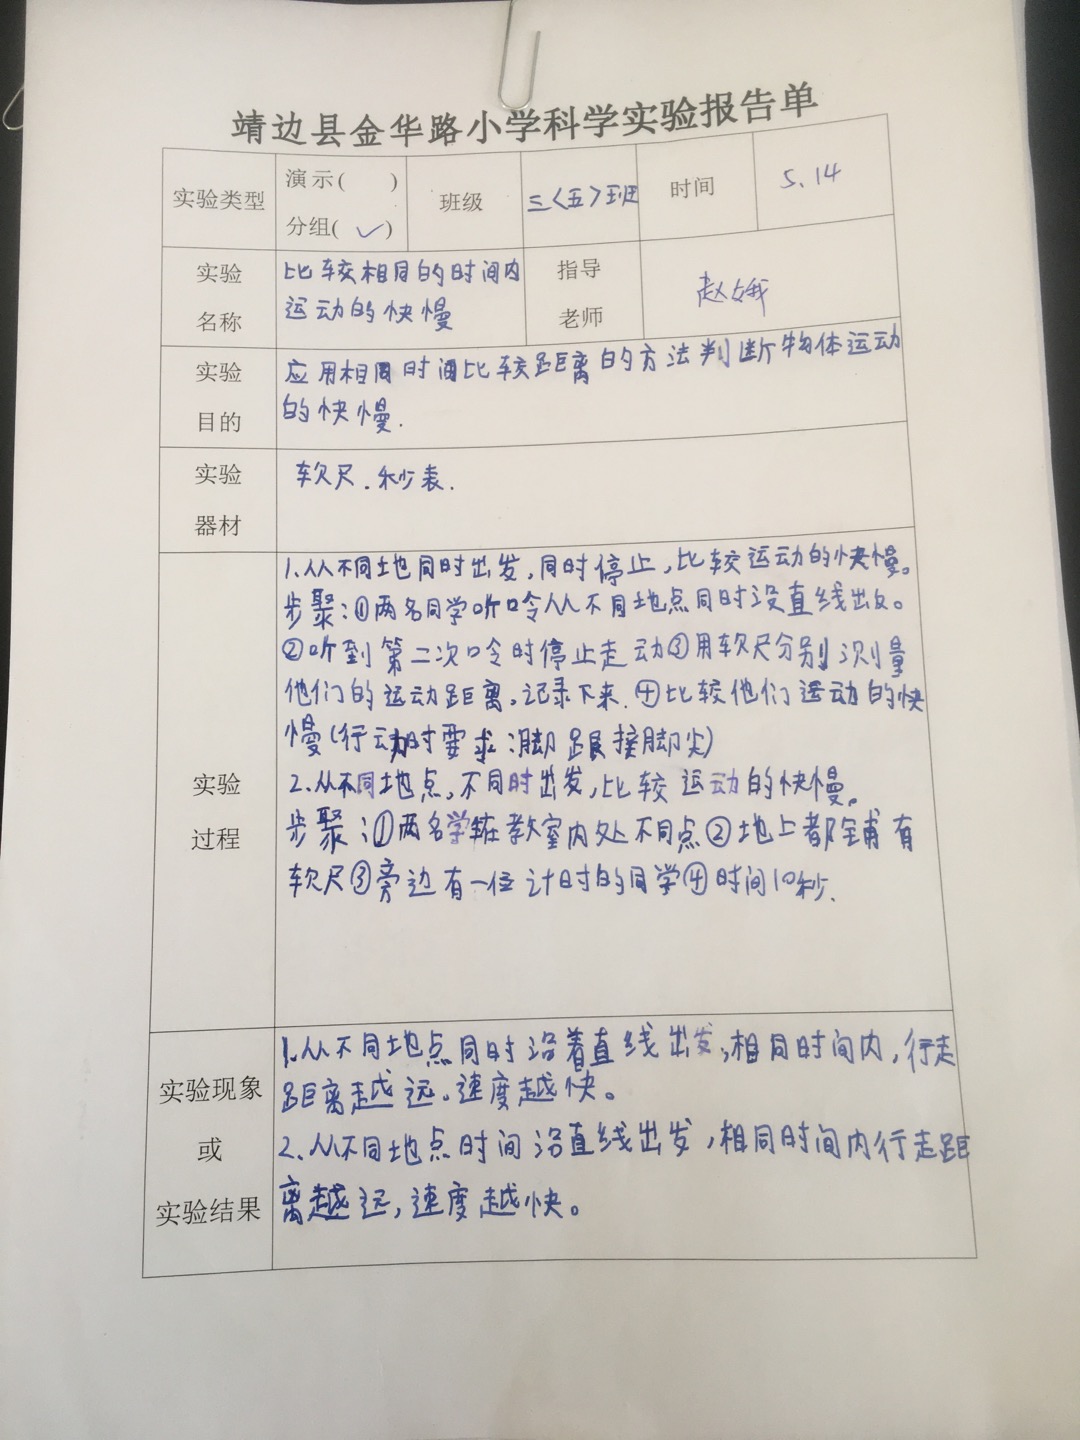 靖边县金华路小学科学实验报告单
实验类型 演示( ) 分组( ✓ ) 班级 三〈五〉班 时间 5、14
实验名称 比较相同的时间内
运动的快慢
指导老师 赵娥
实验目的 应用相同时间比较距离的方法判断物体运动
的快慢.
实验器材 软尺.秒表.
实验过程
1、从不同地点同时出发,同时停止,比较运动的快慢。
步聚:①两名同学听口令从不同地点同时没直线出发。
②听到第二次口令时停止走动③用软尺分别测量
他们的运动距离。记录下来.④比较他们运动的快
慢(行动时要求:脚跟接脚尖)
2.从不同地点,不同时出发,比较运动的快慢。
步聚:①两名学生在教室内处不同点②地上都铺有
软尺③旁边有一位计时的同学④时间10秒.
实验现象或实验结果
1、从不同地点同时沿着直线出发,相同时间内,行走
距离越远。速度越快。
2、从不同地点时间沿直线出发,相同时间内行走距
离越远,速度越快。